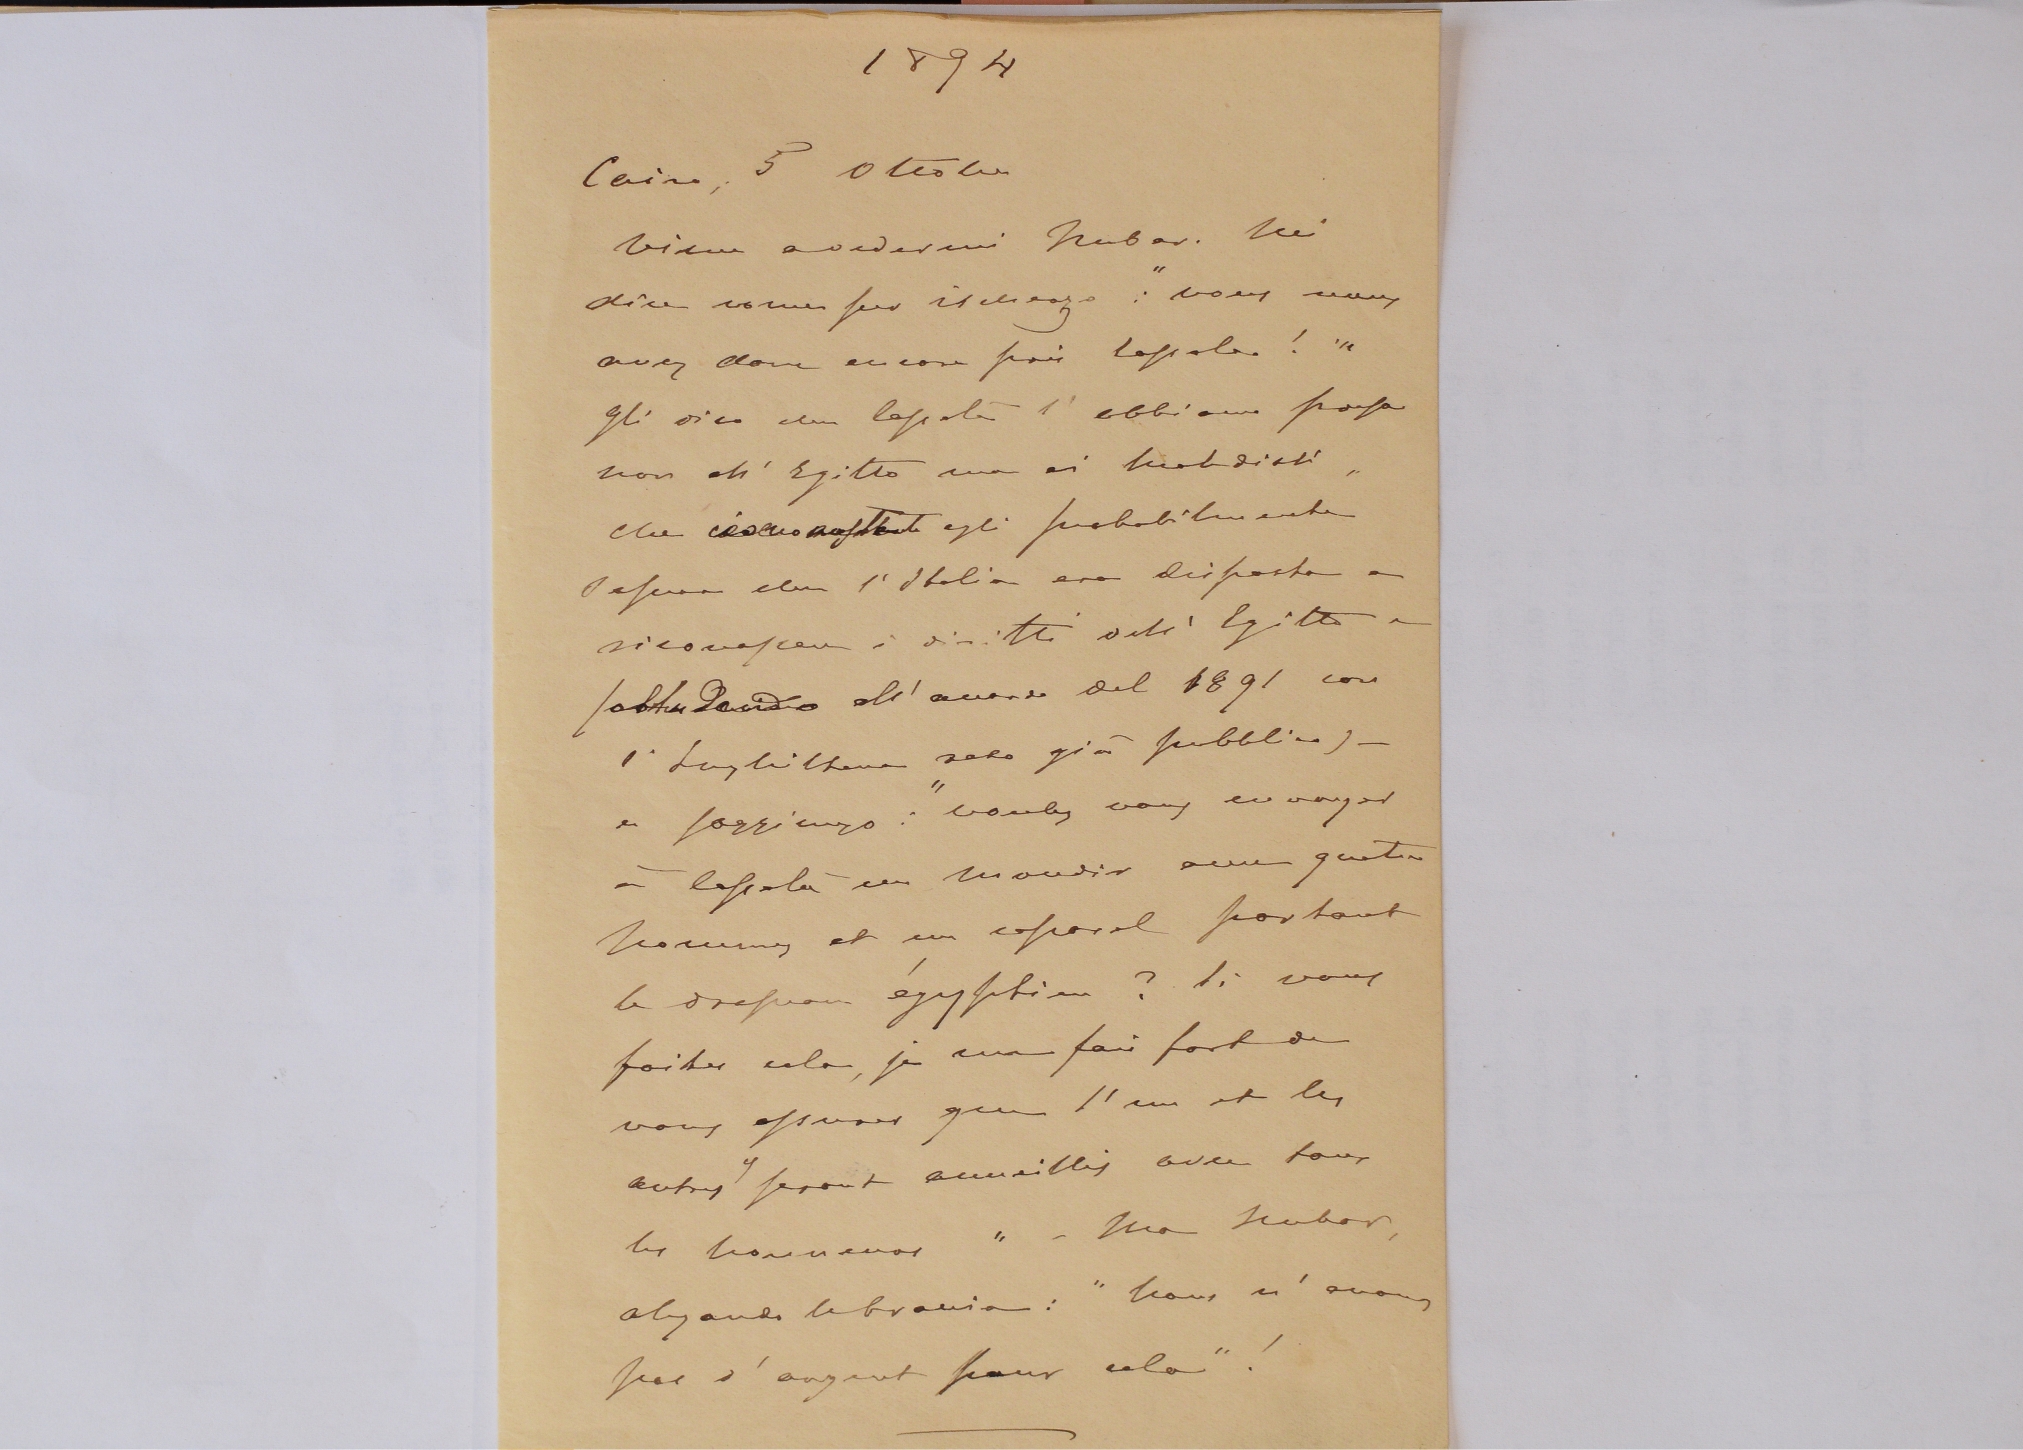 1894
Cairo, 5 Ottobre
Viene a vedermi Nubar. Mi
dice come per ischerzo: "vous nous
avez donc encore pris Cassala!"
gli dico che Cassala l'abbiamo presa
non all'Egitto ma ai Mahdisti,
che egli probabilmente
sapeva che l'Italia era disposta a
riconoscere i diritti dell'Egitto e
alludendo all'accordo del 1891 con
l'Inghilterra reso già pubblico) —
e soggiungo: "voulez vous envoyer
à Cassala un Moudir avec quatre
hommes et un caporal portant
le drapeau égyptien? Si vous
faites cela, je me fais fort de
vous assurer que l'un et les
autres y seront accueillis avec tous
les honneurs" - Ma Nubar,
alzando le braccia: "Nous n'avons
pas d'argent pour cela"!